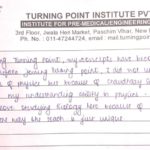 TURNING POINT INSTITUTE PV
INSTITUTE FOR PRE-MEDICAL/ENGINEERING
3rd Floor, Jwala Heri Market, Paschim Vihar, New
Ph. No.: 011-47244724, email: mailturningpoint
Turning Point, my concepts have bec
before joining turning point, I did not
of physics but because of chaudhary s
my understanding ability in physics
love studying biology here because of
way she teach is just unique